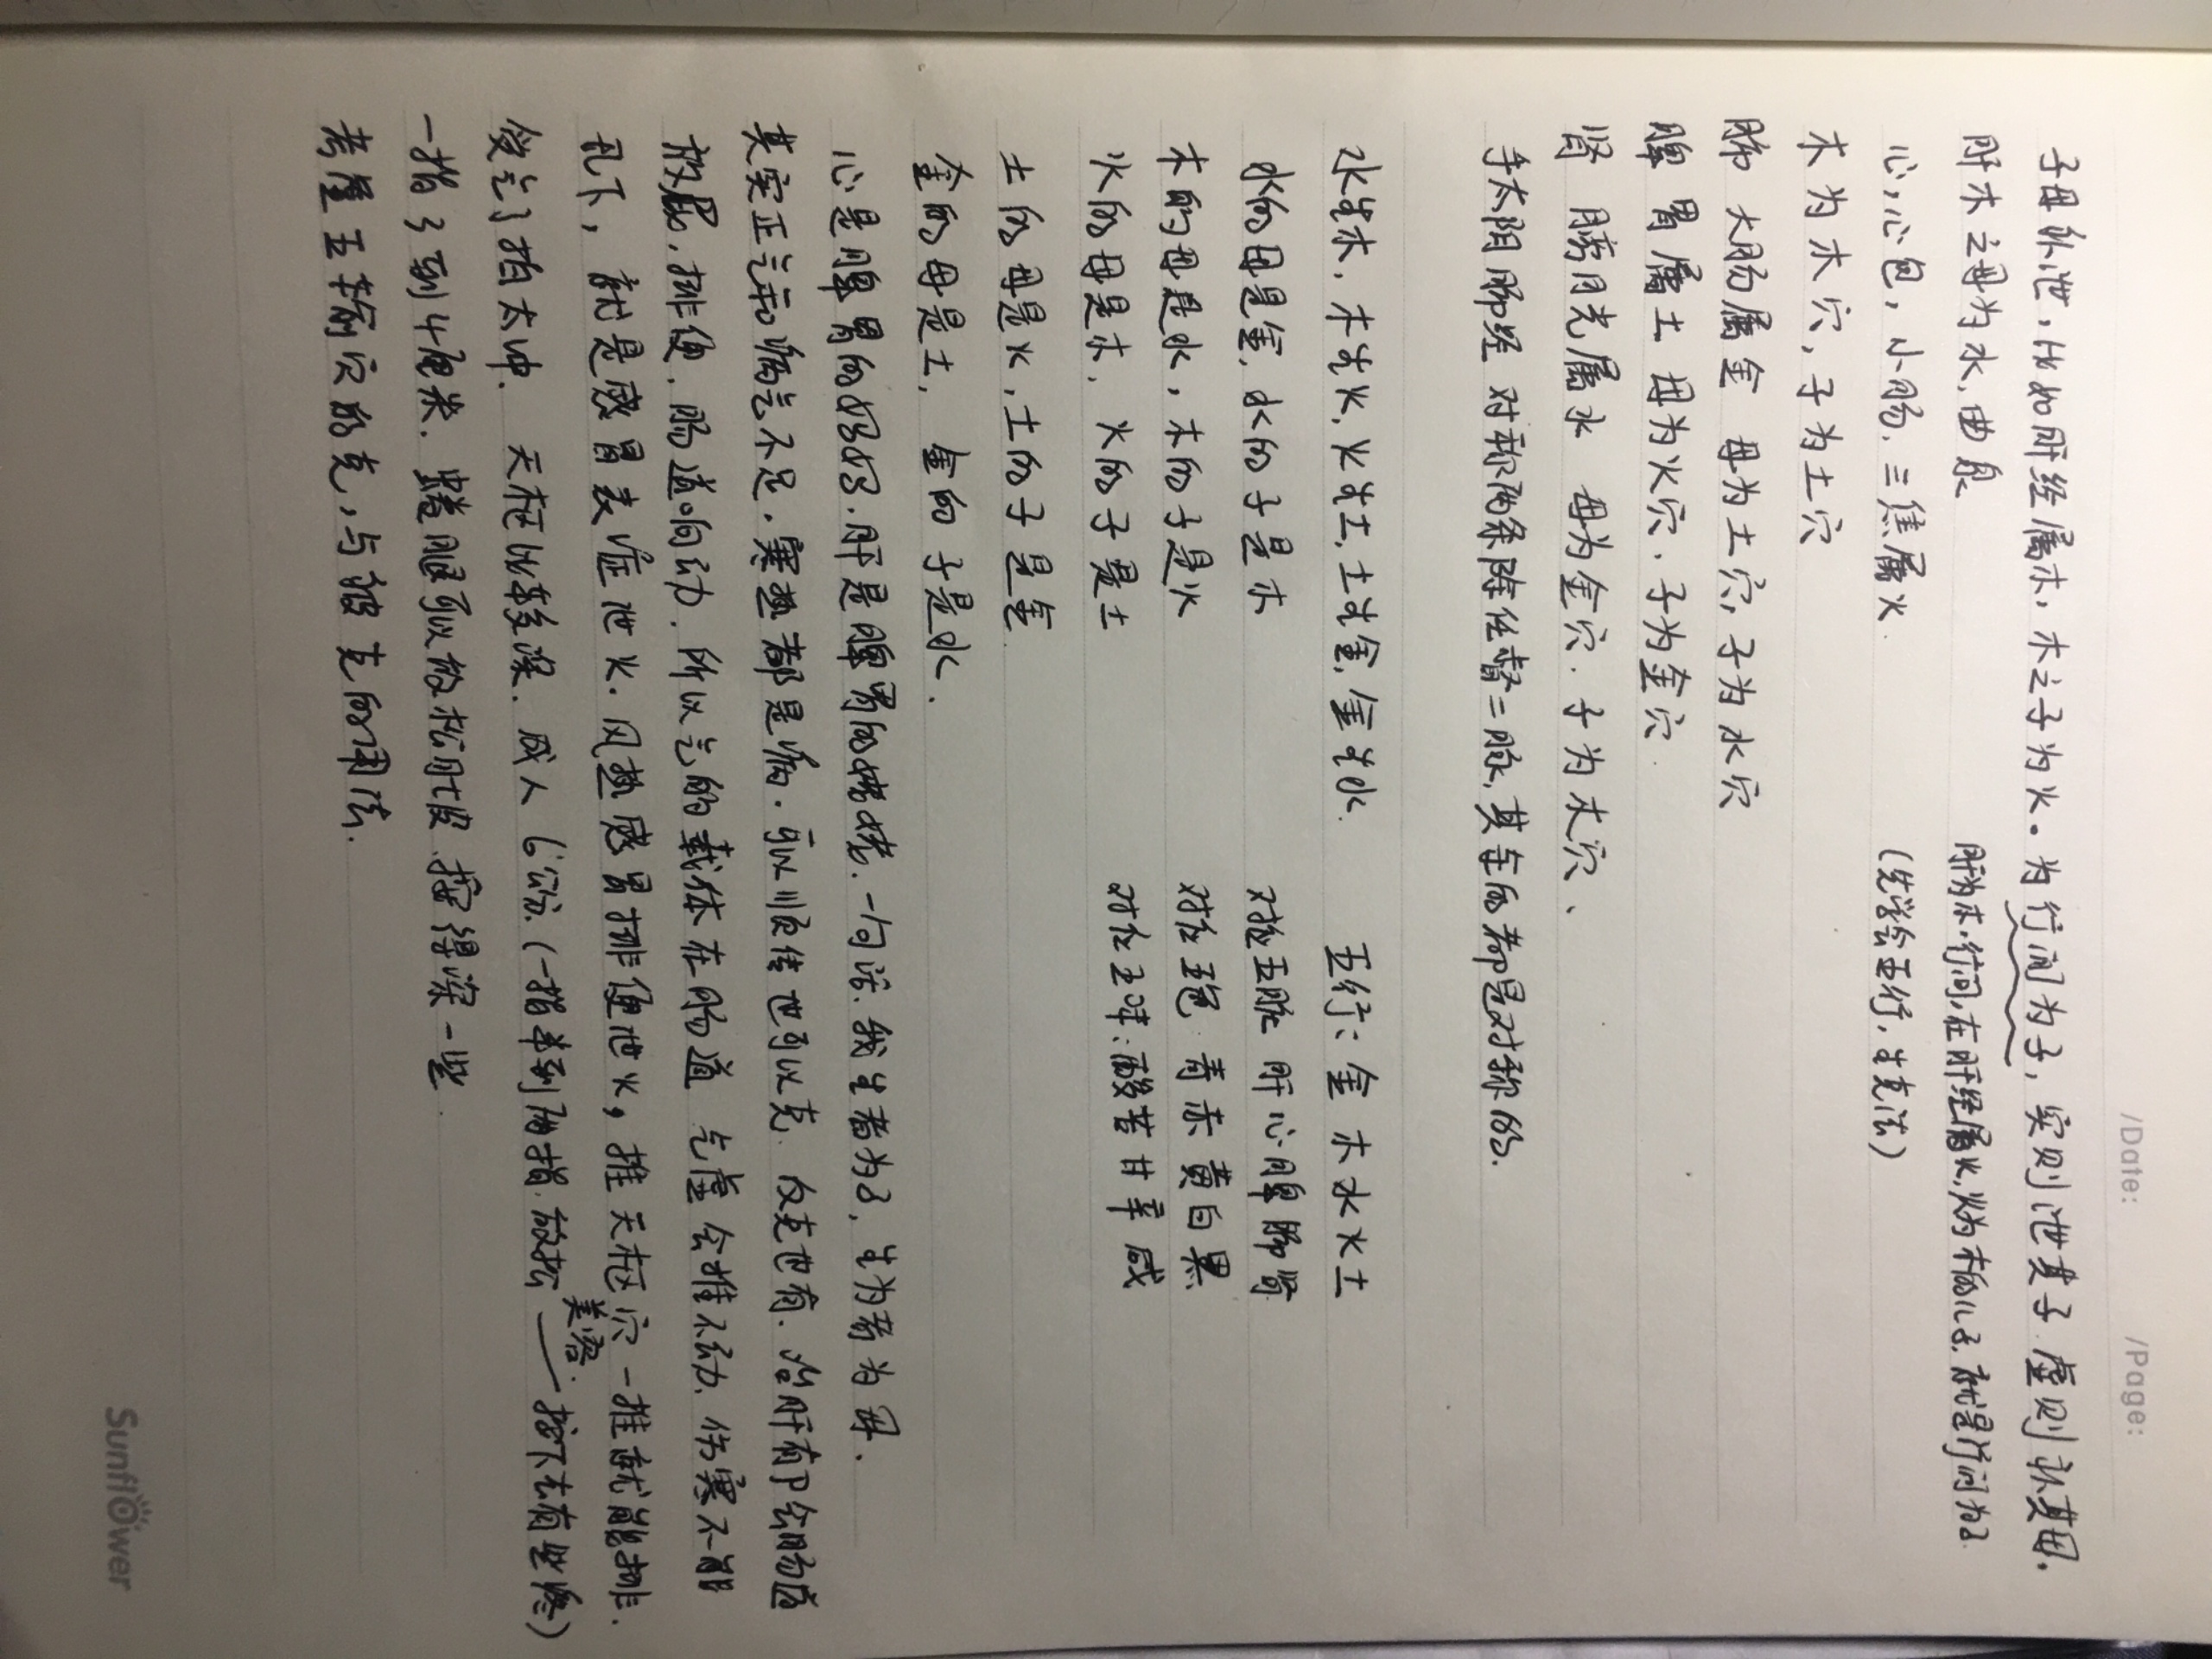 /Date: /Page:
子母补泄，比如肝经属木，木之子为火。为行间为子，实则泄其子.虚则补其母，
肝木之母为水，曲泉 肝为木.行间，在肝经属火，火为木的儿子.就是行间为子
心，心包，小肠，三焦属火. （先学会五行，生克法）
木为木穴，子为土穴
肺 大肠属金 母为土穴，子为水穴
脾 胃属土 母为火穴.子为金穴
肾 膀胱属水 母为金穴.子为木穴、
手太阴肺经 对称两条除任督二脉，其余的都是对称的.
水生木，木生火，火生土，土生金，金生水. 五行：金 木 水 火 土
水的母是金，水的子是木 对应五脏 肝 心 脾 肺 肾
木的母是水，木的子是火 对应五色 青 赤 黄 白 黑
火的母是木，火的子是土 对应五味：酸 苦 甘 辛 咸
土的母是火，土的子是金.
金的母是土，金的子是水.
心是脾胃的妈妈.肝是脾胃的姥姥.一句话.我生者为子，生为者为母.
其实正气和病气不足.寒热都是病.可以顺传也可以克.反克也有.治肝有P会肠道
放屁，排便.肠道响动.所以气的载体在肠道 气虚会推不动.伤寒不能
孔下，就是感冒表症泄火.风热感冒排便泄火，推天枢穴一推就能排.
美容.
受气了掐太冲. 天枢比较深.成人6公分.（一指半到两指.放松——按下去有些疼）
一指3到4厘米.蜷腿可以放松肚皮.按得深一些.
考虑五输穴的克，与被克的用法.
Sunflower